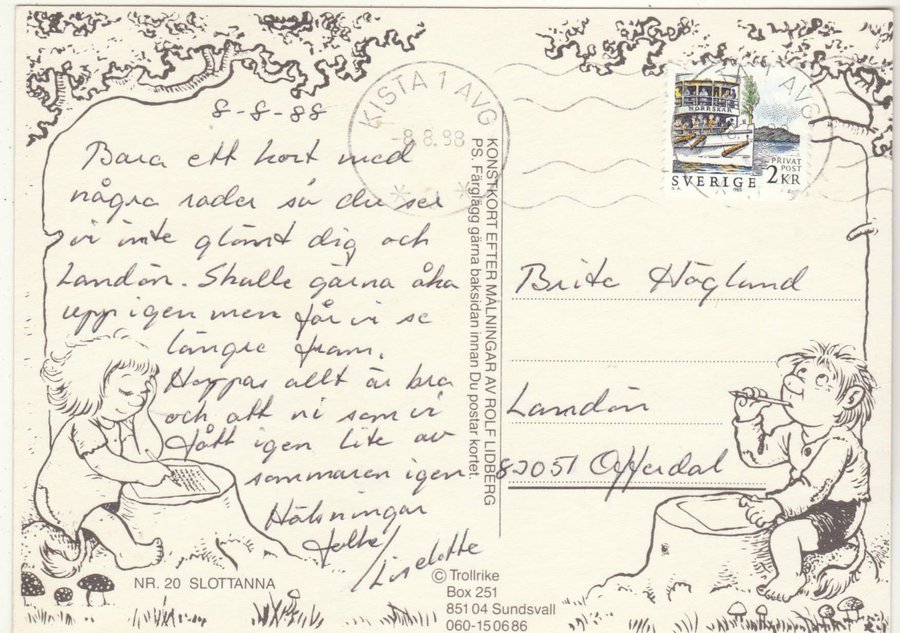 8-8-88
Bara ett kort med
några rader så du ser
vi inte glömt dig och
Landön. Skulle gärna åka
upp igen men får vi se
längre fram.
Hoppas allt är bra
och att ni som vi
fått igen lite av
sommaren igen
Hälsningar
Liselotte
NR. 20 SLOTTANNA
KISTA 1 AVG
-8.8.88
KONSTKORT EFTER MÅLNINGAR AV ROLF LIDBERG
PS. Färglägg gärna baksidan innan Du postar kortet.
© Trollrike
Box 251
851 04 Sundsvall
060-15 06 86
NORRSKÄR
PRIVAT
POST
SVERIGE 2 KR
Brita Höglund
Landön
83051 Offerdal